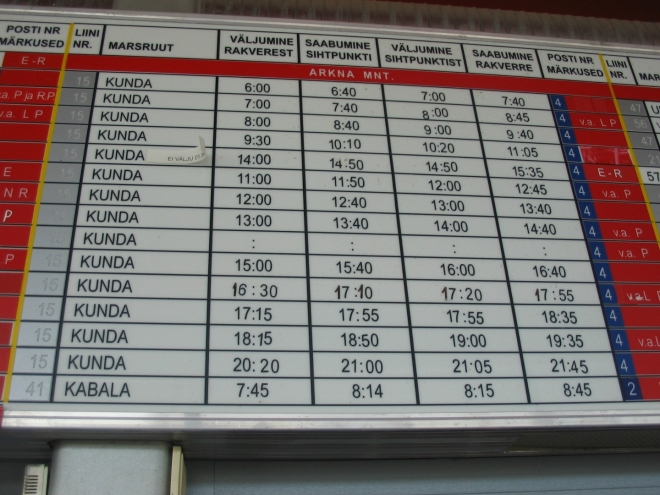 POSTI NR MÄRKUSED LIINI NR. MARSRUUT VÄLJUMINE RAKVEREST SAABUMINE SIHTPUNKTI VÄLJUMINE SIHTPUNKTIST SAABUMINE RAKVERRE POSTI NR MÄRKUSED LIINI NR. MAR
E-R ARKNA MNT.
15 KUNDA 6:00 6:40 7:00 7:40 4 47
v.a. P ja RP 15 KUNDA 7:00 7:40 8:00 8:45 4 v.a. L P 56
v.a. L P 15 KUNDA 8:00 8:40 9:00 9:40 4 47
15 KUNDA 9:30 10:10 10:20 11:05 4 21
15 KUNDA EI VÄLJU 14:00 14:50 14:50 15:35 4 E-R 57
E 15 KUNDA 11:00 11:50 12:00 12:45 4 v.a. P
N R 15 KUNDA 12:00 12:40 13:00 13:40 4
P 15 KUNDA 13:00 13:40 14:00 14:40 4 v.a. P
15 KUNDA : : : : 4 v.a. P
P 15 KUNDA 15:00 15:40 16:00 16:40 4
15 KUNDA 16:30 17:10 17:20 17:55 4 v.a. L P
15 KUNDA 17:15 17:55 17:55 18:35 4
15 KUNDA 18:15 18:50 19:00 19:35 4 v.a. L
15 KUNDA 20:20 21:00 21:05 21:45 4
41 KABALA 7:45 8:14 8:15 8:45 2